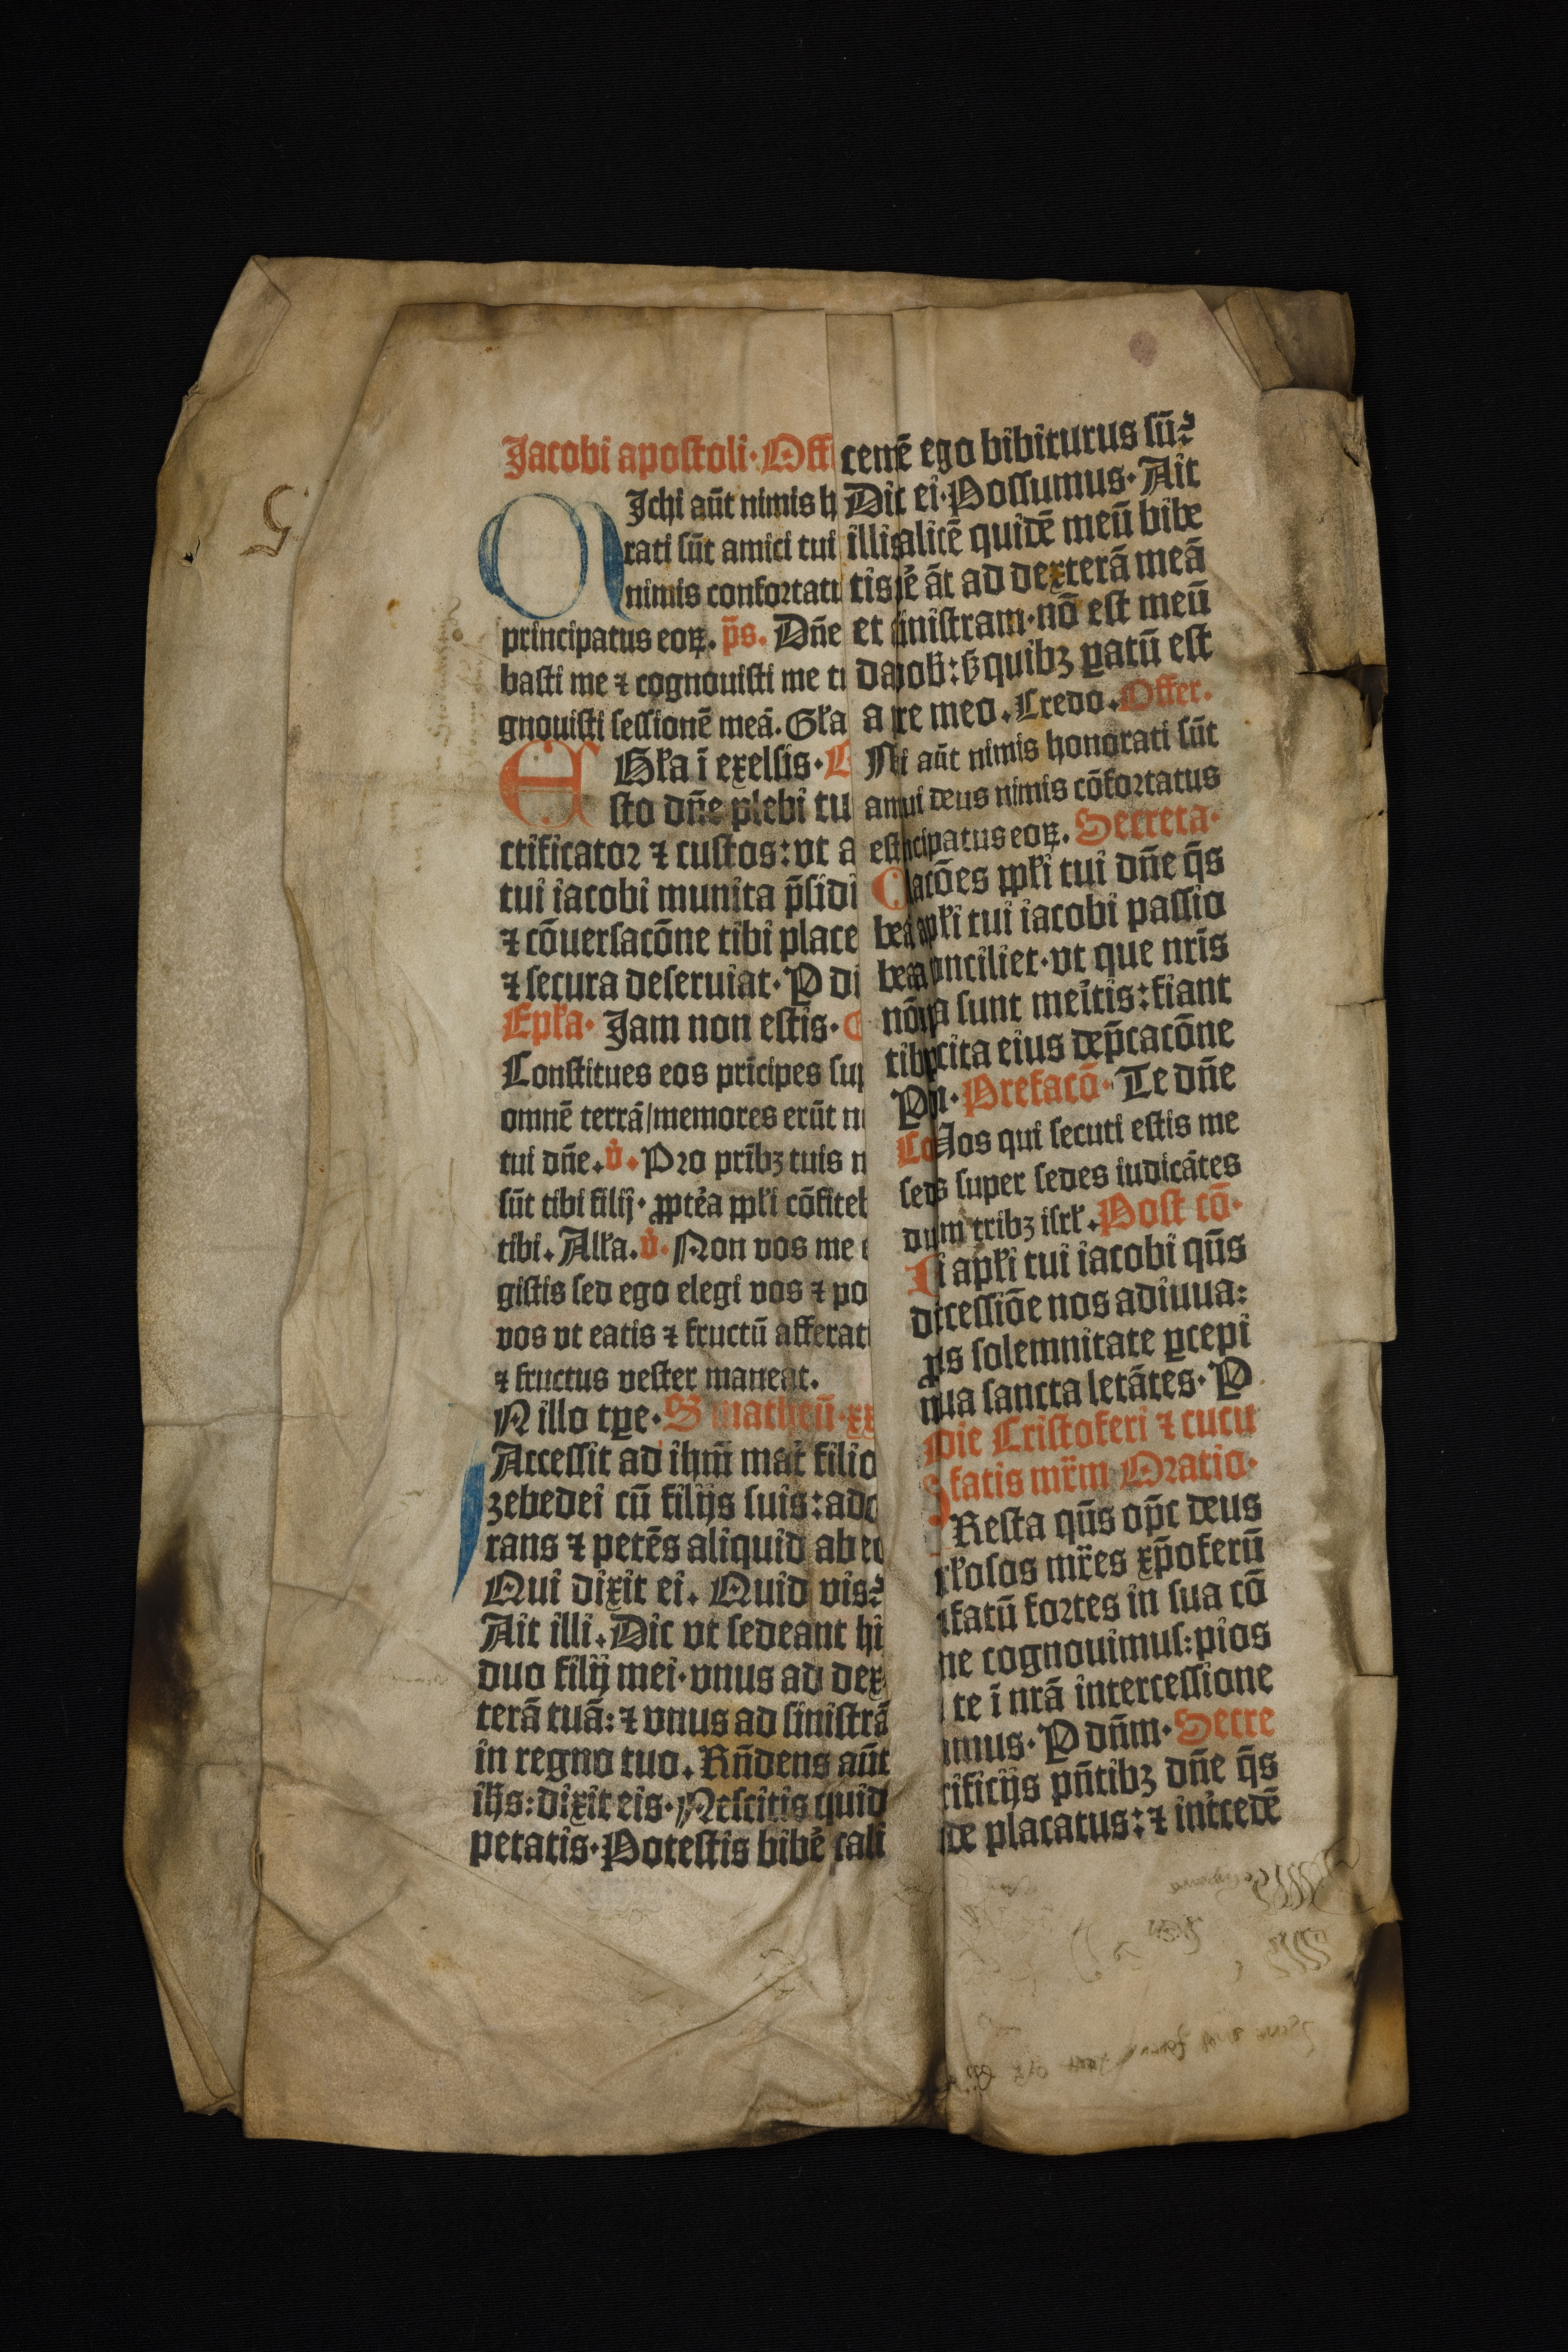 Jacobi apostoli · Off
Michi aūt nimis h
rati sūt amici tui
nimis confortatu
principatus eoꝝ. p̄s. Dn̄e
basti me ⁊ cognouisti me tu
gnouisti sessionē meā. Gła
Gła ī exelsis ·
Esto dn̄e plebi tu
ctificator ⁊ custos: vt a
tui iacobi munita p̄sidi
⁊ cōuersacōne tibi place
⁊ secura deseruiat · P di
Epła · Jam non estis ·
Constitues eos prīcipes sup
omnē terrā/memores erūt n
tui dn̄e. v̇. Pro prībꝫ tuis n
sūt tibi filij · ꝓptea ppłi cōfiteb
tibi. Alła. v̇. Non vos me e
gistis sed ego elegi vos ⁊ po
vos vt eatis ⁊ fructū afferat
⁊ fructus vester maneat.
IN illo tꝑe · S matheū · xx
Accessit ad ihm̄ mat̄ filio
zebedei cū filijs suis: ado
rans ⁊ petēs aliquid ab eo
Qui dixit ei. Quid vis?
Ait illi. Dic vt sedeant hi
duo filij mei · vnus ad dex
terā tuā: ⁊ vnus ad sinistrā
in regno tuo. Rn̄dens aūt
ihs̄: dixit eis · Nescitis quid
petatis · Potestis bibe cali
cem̄ ego bibiturus sū?
Dic ei · Possumus · Ait
illis alicē quidē meū bibe
tis ē āt ad dexterā meā
et inistram · nō est meū
da ob̄: ẜ quibꝫ ꝑatū est
a re meo. Credo. Offer.
Mi aūt nimis honorati sūt
am ui deus nimis cōfortatus
est cipatus eoꝝ. Secreta ·
acōes ppłi tui dn̄e q̄s
bea apłi tui iacobi passio
bea onciliet · vt que nr̄is
nō a sunt mer̄itis: fiant
tib cita eius dep̄cacōne
P n · Prefacō · Te dn̄e
Co Uos qui secuti estis me
sed s super sedes iudicātes
du m tribꝫ isrł. Post cō ·
i apłi tui iacobi qūs
cessiōe nos adiuua:
s solemnitate ꝑcepi
ua sancta letātes · P
die Cristoferi ⁊ cucu
fatis mr̄m Oratio ·
Resta qūs op̄c deus
łosos mr̄es xp̄oferū
fatū fortes in sua cō
ne cognouimus: pios
te ī nr̄ā intercessione
mus · P dn̄m · Secre
ificijs pn̄tibꝫ dn̄e q̄s
de placatus: ⁊ int̄cedē
5